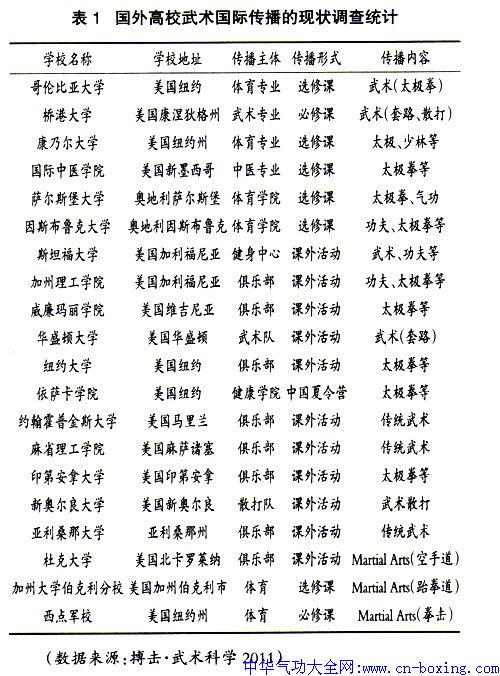 表 1 国外高校武术国际传播的现状调查统计
学校名称 学校地址 传播主体 传播形式 传播内容
哥伦比亚大学 美国纽约 体育专业 选修课 武术(太极拳)
桥港大学 美国康涅狄格州 武术专业 必修课 武术(套路、散打)
康乃尔大学 美国纽约州 体育专业 选修课 太极、少林等
国际中医学院 美国新墨西哥 中医专业 选修课 太极拳等
萨尔斯堡大学 奥地利萨尔斯堡 体育学院 选修课 太极拳、气功
因斯布鲁克大学 奥地利因斯布鲁克 体育学院 选修课 功夫、太极拳等
斯坦福大学 美国加利福尼亚 健身中心 课外活动 武术、功夫等
加州理工学院 美国加利福尼亚 俱乐部 课外活动 功夫、太极拳等
威廉玛丽学院 美国维吉尼亚 俱乐部 课外活动 太极拳等
华盛顿大学 美国华盛顿 武术队 课外活动 武术(套路)
纽约大学 美国纽约 俱乐部 课外活动 太极拳等
依萨卡学院 美国纽约 健康学院 中国夏令营 太极拳等
约翰霍普金斯大学 美国马里兰 俱乐部 课外活动 传统武术
麻省理工学院 美国麻萨诸塞 俱乐部 课外活动 传统武术
印第安拿大学 美国印第安拿 俱乐部 课外活动 太极拳等
新奥尔良大学 美国新奥尔良 散打队 课外活动 武术散打
亚利桑那大学 亚利桑那州 俱乐部 课外活动 传统武术
杜克大学 美国北卡罗莱纳 俱乐部 课外活动 Martial Arts(空手道)
加州大学伯克利分校 美国加州伯克利市 体育 选修课 Martial Arts(跆拳道)
西点军校 美国纽约州 体育 必修课 Martial Arts(拳击)
(数据来源:搏击·武术科学 2011)
中华气功大全网:www.cn-boxing.com